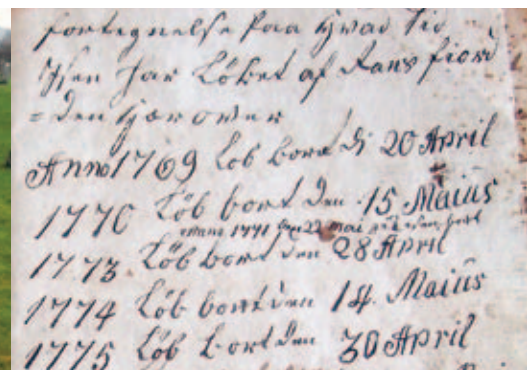 fortegnelse Paa Hvad Tid
Isen har Løbet af Rans fiord
=den Hær over
Anno 1769 Løb bort di 20 April
1770 Løb bort den 15 Maius
Anno 1771 den 22 Mai bort
1773 Løb bort den 28 April
1774 Løb bort den 14. Maius
1775 Løb bort den 30 April